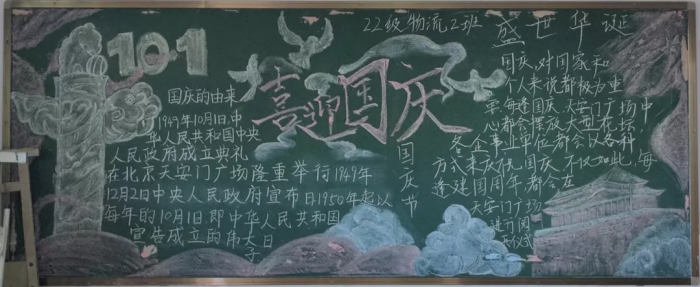 22级物流2班
10·1
喜迎国庆
国庆节
国庆的由来
1949年10月1日,中
华人民共和国中央
人民政府成立典礼
在北京天安门广场隆重举行1949年
12月2日中央人民政府宣布自1950年起以
每年的10月1日即中华人民共和国
宣告成立的伟大日
子
盛世华诞
国庆,对国家和
个人来说都极为重
要每逢国庆天安门广场中
心都会摆放大型花坛,
各企事业单位都会以各种
方式来庆祝国庆不仅如此,每
逢建国周年都会在
天安门广场
进行阅
兵仪式